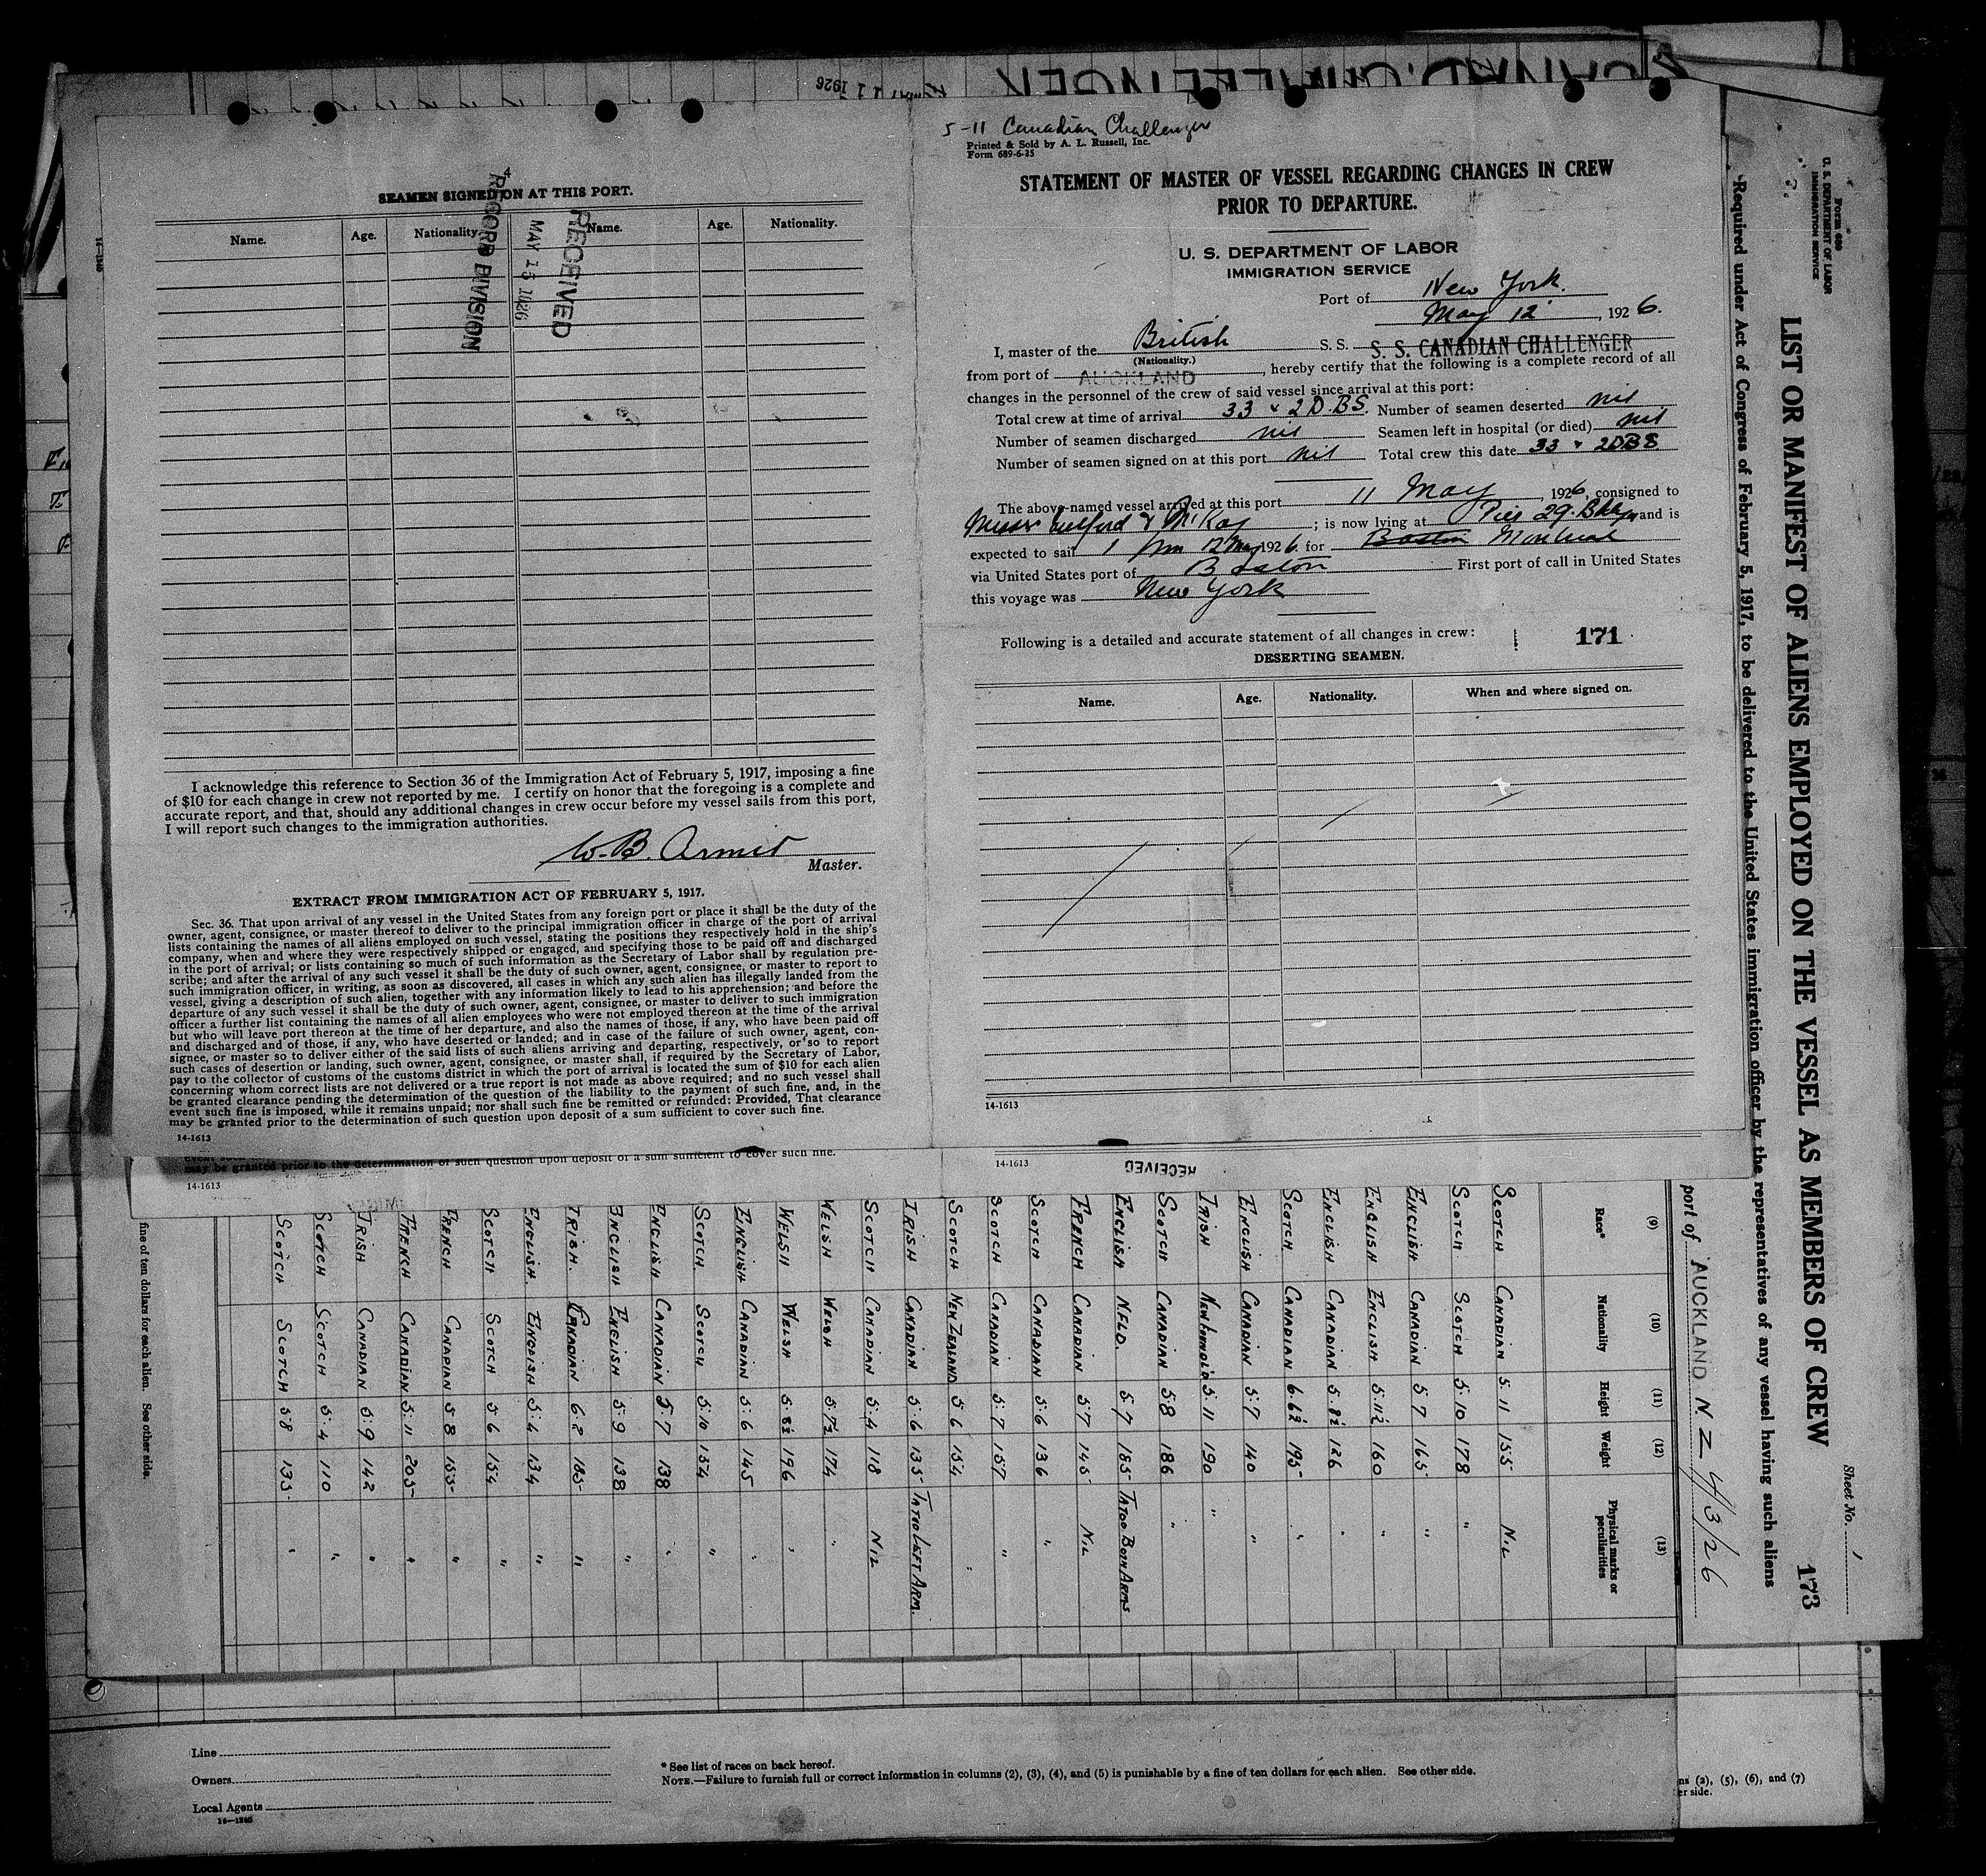 CANAD. CHALLENGER
MAY 11 1926
5-11 Canadian Challenger
Printed & Sold by A. L. Russell, Inc.
Form 689-6-25
STATEMENT OF MASTER OF VESSEL REGARDING CHANGES IN CREW
PRIOR TO DEPARTURE.
U. S. DEPARTMENT OF LABOR
IMMIGRATION SERVICE
Port of New York.
May 12, 1926.
I, master of the British S. S. S. S. CANADIAN CHALLENGER
(Nationality.)
from port of AUCKLAND, hereby certify that the following is a complete record of all
changes in the personnel of the crew of said vessel since arrival at this port:
Total crew at time of arrival 33 & 2 D.B.S. Number of seamen deserted nil
Number of seamen discharged nil Seamen left in hospital (or died) nil
Number of seamen signed on at this port nil Total crew this date 33 & 2 DBS.
The above-named vessel arrived at this port 11 May, 1926, consigned to
& McKay; is now lying at Pier 29. Bklyn and is
expected to sail 1 pm 12 May 1926 for Boston Montreal
via United States port of Boston First port of call in United States
this voyage was New York
Following is a detailed and accurate statement of all changes in crew: 171
DESERTING SEAMEN.
Name. Age. Nationality. When and where signed on.
14-1613
4
SEAMEN SIGNED ON AT THIS PORT.
Name. Age. Nationality. Name. Age. Nationality.
RECEIVED
MAY 15 1926
RECORD DIVISION
I acknowledge this reference to Section 36 of the Immigration Act of February 5, 1917, imposing a fine
of $10 for each change in crew not reported by me. I certify on honor that the foregoing is a complete and
accurate report, and that, should any additional changes in crew occur before my vessel sails from this port,
I will report such changes to the immigration authorities.
W. B. Armit
Master.
EXTRACT FROM IMMIGRATION ACT OF FEBRUARY 5, 1917.
Sec. 36. That upon arrival of any vessel in the United States from any foreign port or place it shall be the duty of the
owner, agent, consignee, or master thereof to deliver to the principal immigration officer in charge of the port of arrival
lists containing the names of all aliens employed on such vessel, stating the positions they respectively hold in the ship's
company, when and where they were respectively shipped or engaged, and specifying those to be paid off and discharged
in the port of arrival; or lists containing so much of such information as the Secretary of Labor shall by regulation pre-
scribe; and after the arrival of any such vessel it shall be the duty of such owner, agent, consignee, or master to report to
such immigration officer, in writing, as soon as discovered, all cases in which any such alien has illegally landed from the
vessel, giving a description of such alien, together with any information likely to lead to his apprehension; and before the
departure of any such vessel it shall be the duty of such owner, agent, consignee, or master to deliver to such immigration
officer a further list containing the names of all alien employees who were not employed thereon at the time of the arrival
but who will leave port thereon at the time of her departure, and also the names of those, if any, who have been paid off
and discharged and of those, if any, who have deserted or landed; and in case of the failure of such owner, agent, con-
signee, or master so to deliver either of the said lists of such aliens arriving and departing, respectively, or so to report
such cases of desertion or landing, such owner, agent, consignee, or master shall, if required by the Secretary of Labor,
pay to the collector of customs of the customs district in which the port of arrival is located the sum of $10 for each alien
concerning whom correct lists are not delivered or a true report is not made as above required; and no such vessel shall
be granted clearance pending the determination of the question of the liability to the payment of such fine, and, in the
event such fine is imposed, while it remains unpaid; nor shall such fine be remitted or refunded: Provided, That clearance
may be granted prior to the determination of such question upon deposit of a sum sufficient to cover such fine.
14-1613
may be granted prior to the determination of such question upon deposit of a sum sufficient to cover such fine.
14-1613
14-1613
RECEIVED
Form 680
U. S. DEPARTMENT OF LABOR
IMMIGRATION SERVICE
Sheet No. 1
173
LIST OR MANIFEST OF ALIENS EMPLOYED ON THE VESSEL AS MEMBERS OF CREW
Required under Act of Congress of February 5, 1917, to be delivered to the United States immigration officer by the representatives of any vessel having such aliens
port of AUCKLAND N Z 4/3/26
(9) (10) (11) (12) (13)
Race* Nationality Height Weight Physical marks or peculiarities
SCOTCH CANADIAN 5.11 155 NIL
SCOTCH SCOTCH 5.10 178 "
ENGLISH CANADIAN 5 7 165 "
ENGLISH ENGLISH 5.11½ 160 "
ENGLISH CANADIAN 5.8½ 126 "
SCOTCH CANADIAN 6.6½ 195 "
ENGLISH CANADIAN 5.7 140 "
IRISH 5.11 190 "
SCOTCH CANADIAN 5.8 186 "
ENGLISH NFLD. 5.7 185 TATOO BOTH ARMS
FRENCH CANADIAN 5.7 145 NIL
SCOTCH CANADIAN 5.6 136 "
SCOTCH CANADIAN 5.7 157 "
SCOTCH NEW ZEALAND 5 6 154 "
IRISH CANADIAN 5.6 135 TATOO LEFT ARM.
SCOTCH CANADIAN 5.4 118 NIL
WELSH WELSH 5.7½ 174 "
WELSH WELSH 5.8½ 196 "
ENGLISH CANADIAN 5.6 145 "
SCOTCH SCOTCH 5.10 154 "
ENGLISH CANADIAN 5.7 138 "
ENGLISH ENGLISH 5.9 138 "
IRISH. CANADIAN 6.2 185 "
ENGLISH. ENGLISH 5.4 134 "
SCOTCH SCOTCH 5.6 154 "
FRENCH CANADIAN 5.8 155 "
FRENCH CANADIAN 5.11 205 "
IRISH CANADIAN 5.9 142 "
SCOTCH SCOTCH 5.4 110 "
SCOTCH SCOTCH 5.8 135 "
fine of ten dollars for each alien. See other side.
Line
Owners
Local Agents
* See list of races on back hereof.
NOTE.—Failure to furnish full or correct information in columns (2), (3), (4), and (5) is punishable by a fine of ten dollars for each alien. See other side.
ns (2), (5), (6), and (7)
er side.